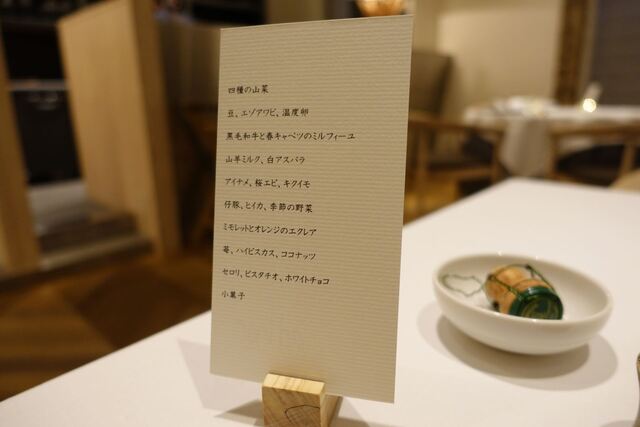 四種の山菜
豆、エゾアワビ、温度卵
黒毛和牛と春キャベツのミルフィーユ
山羊ミルク、白アスパラ
アイナメ、桜エビ、キクイモ
仔豚、ヒイカ、季節の野菜
ミモレットとオレンジのエクレア
苺、ハイビスカス、ココナッツ
セロリ、ピスタチオ、ホワイトチョコ
小菓子